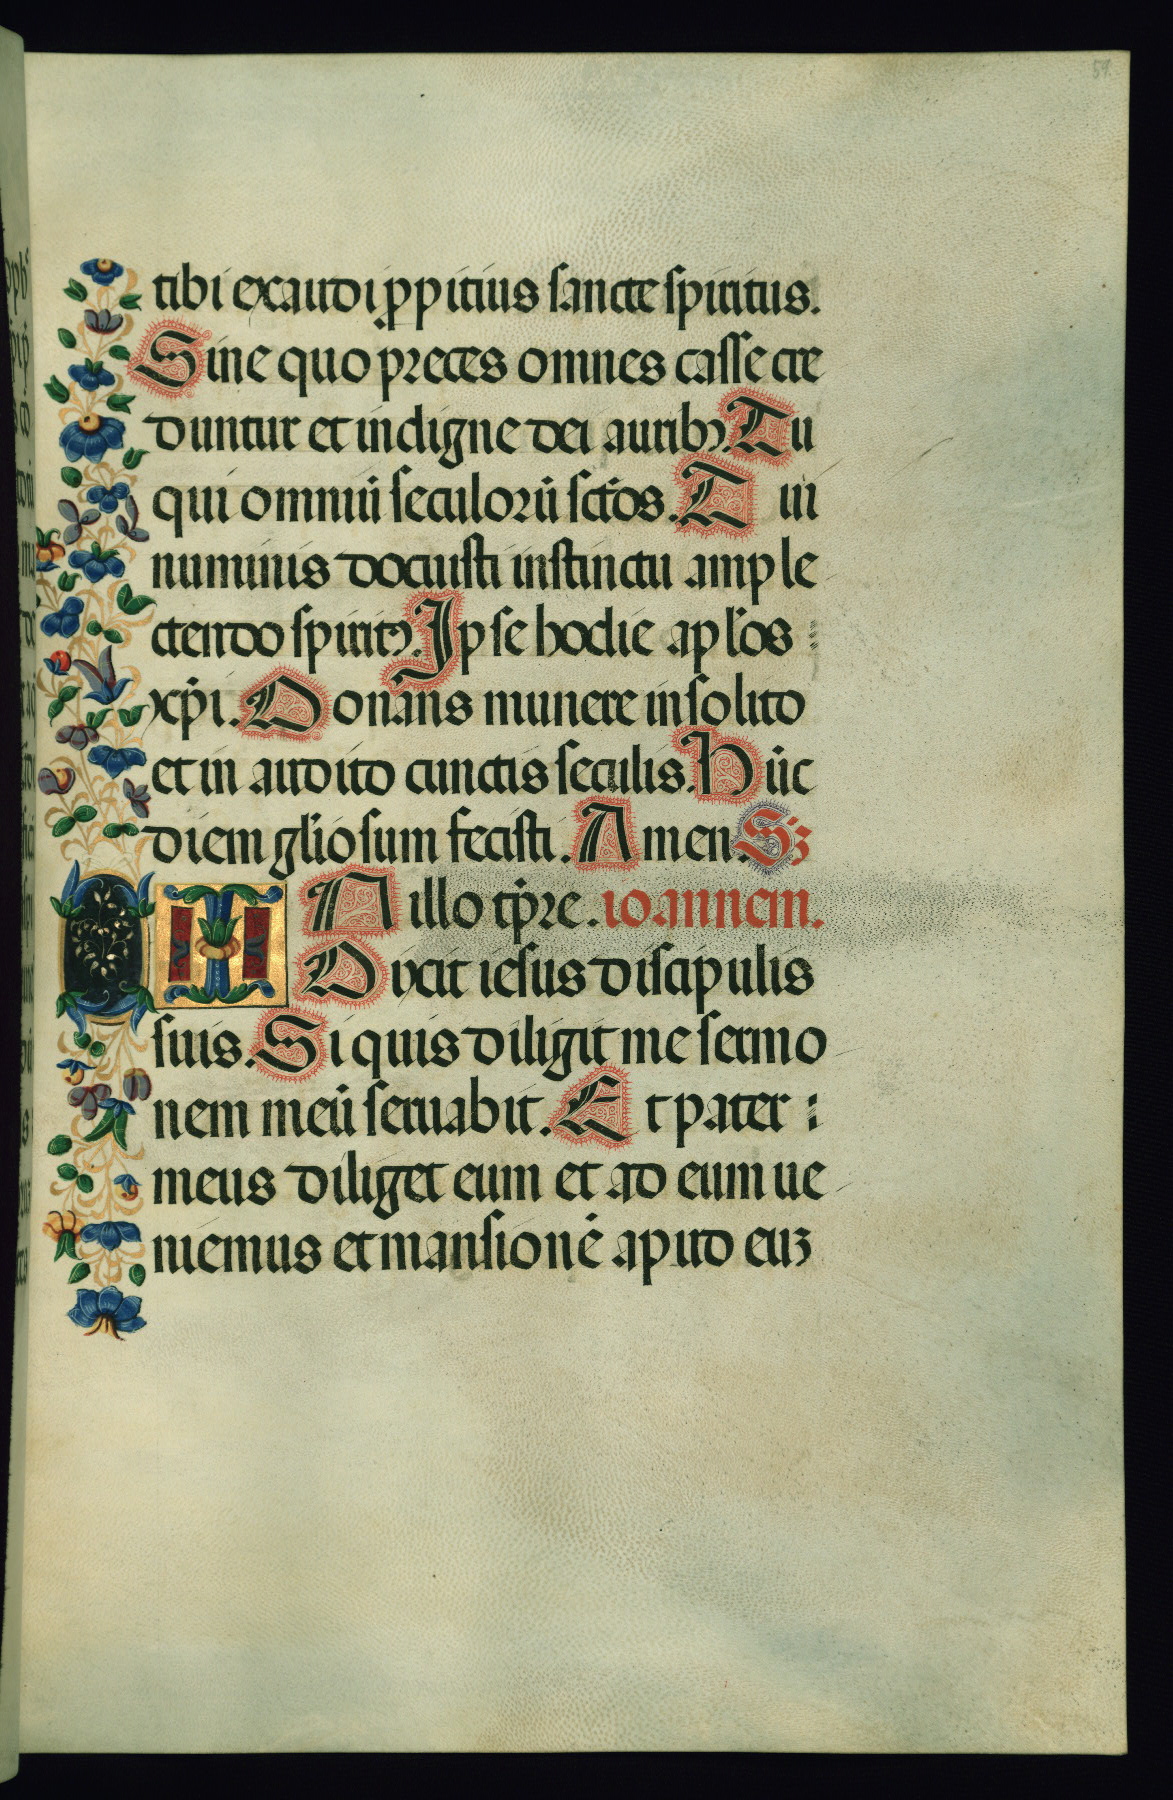 59.
tibi exaudi ꝓpitius sancte spiritus.
Sine quo preces omnes casse cre
duntur et indigne dei aurib9. Tu
qui omniū seculorū sctōs. Tui
numinis docuisti instinctu ample
ctendo spirit9. Ipse hodie apl'os :
xp̄i. Donans munere insolito
et in audito cunctis seculis. Hūc
diem gl'iosum fecisti. Amen. Sꝫ
IN illo tp̄re. ioannem.
Dixit iesus discipulis
suis. Si quis diligit me sermo
nem meū seruabit. Et pater :
meus diliget eum et ad eum ue
niemus et mansionē apud euꝫ